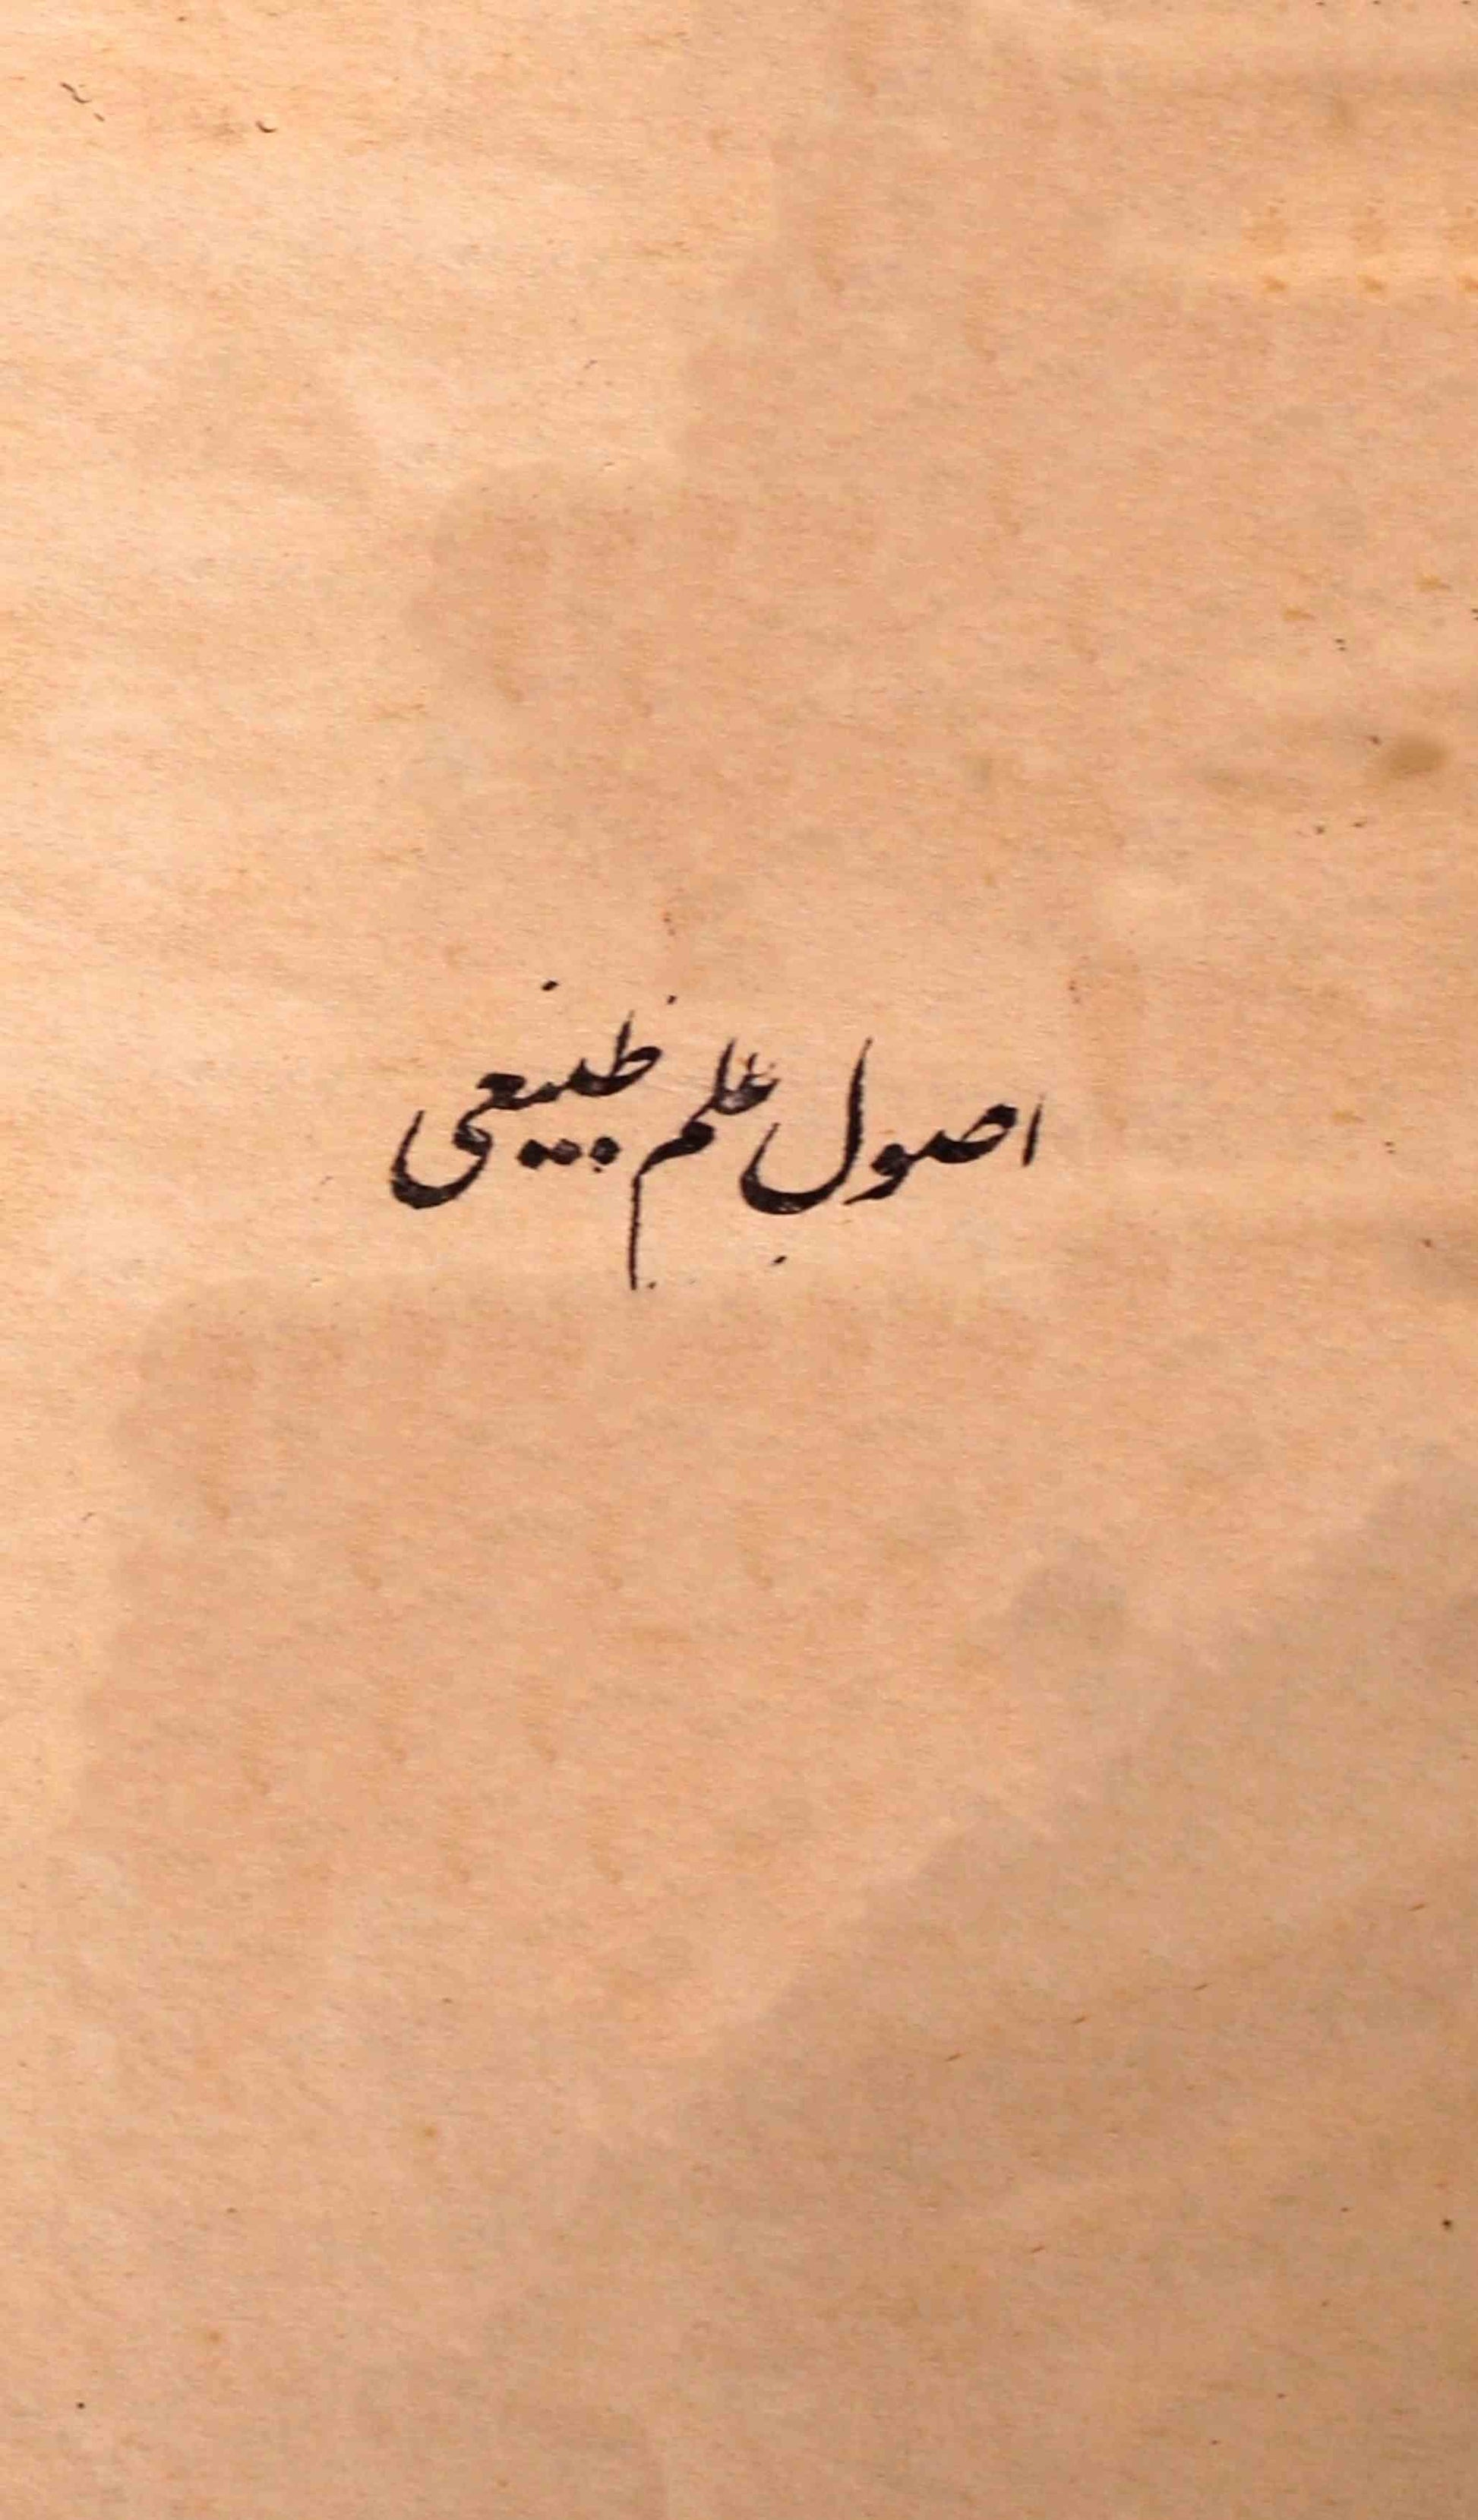 اصول علم طبیعی